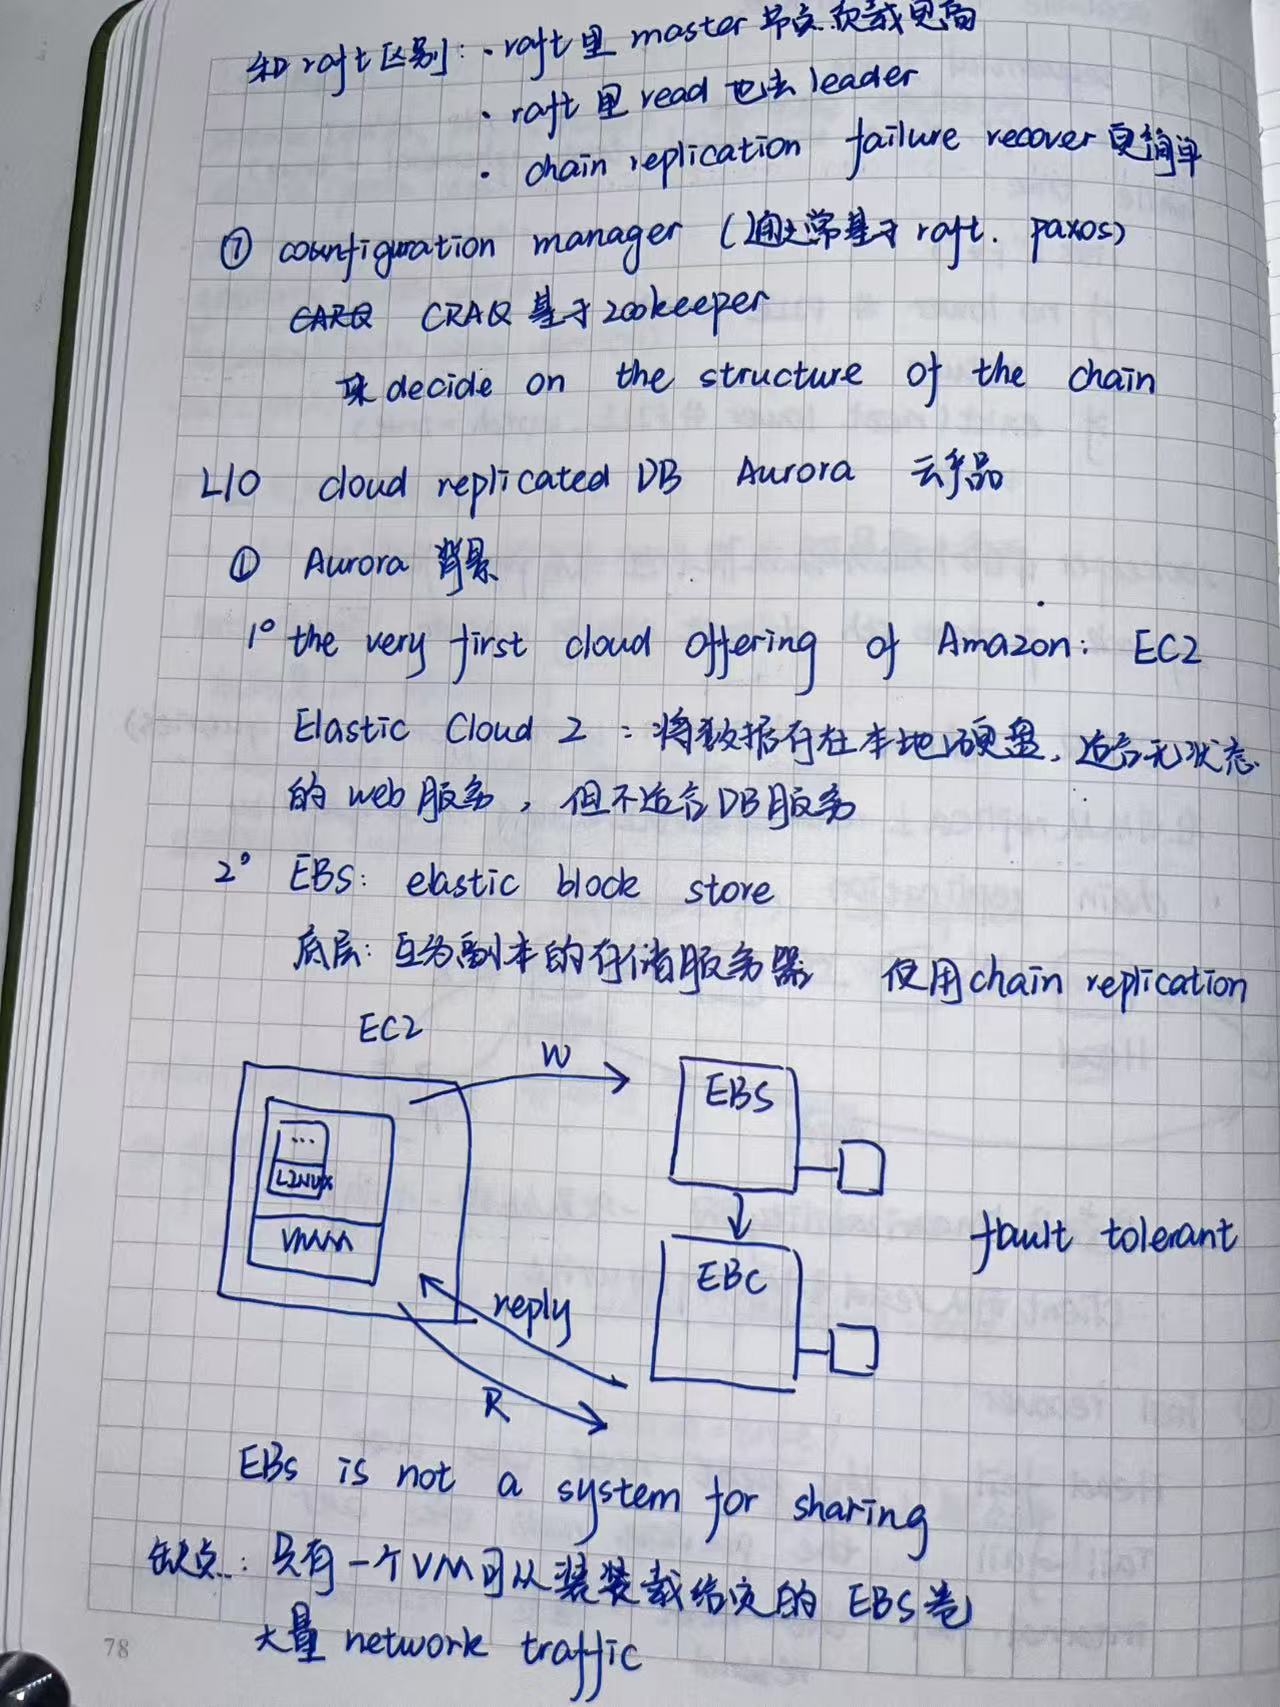 和raft区别: · raft里 master 节点负载更高
· raft里read也去leader
· chain replication failure recover更简单
⑦ counfiguration manager (通常基于raft. paxos)
CARQ CRAQ基于zookeeper
来decide on the structure of the chain
L10 cloud replicated DB Aurora 云产品
① Aurora 背景
1° the very first cloud offering of Amazon: EC2
Elastic Cloud 2 : 将数据存在本地硬盘, 适合无状态
的web服务, 但不适合DB服务
2° EBS: elastic block store
底层: 互为副本的存储服务器 使用chain replication
EC2
W
EBS
...
LINUX
VMM
fault tolerant
EBC
reply
R
EBS is not a system for sharing
缺点: 只有一个VM可从装装载给定的 EBS卷
大量 network traffic
78